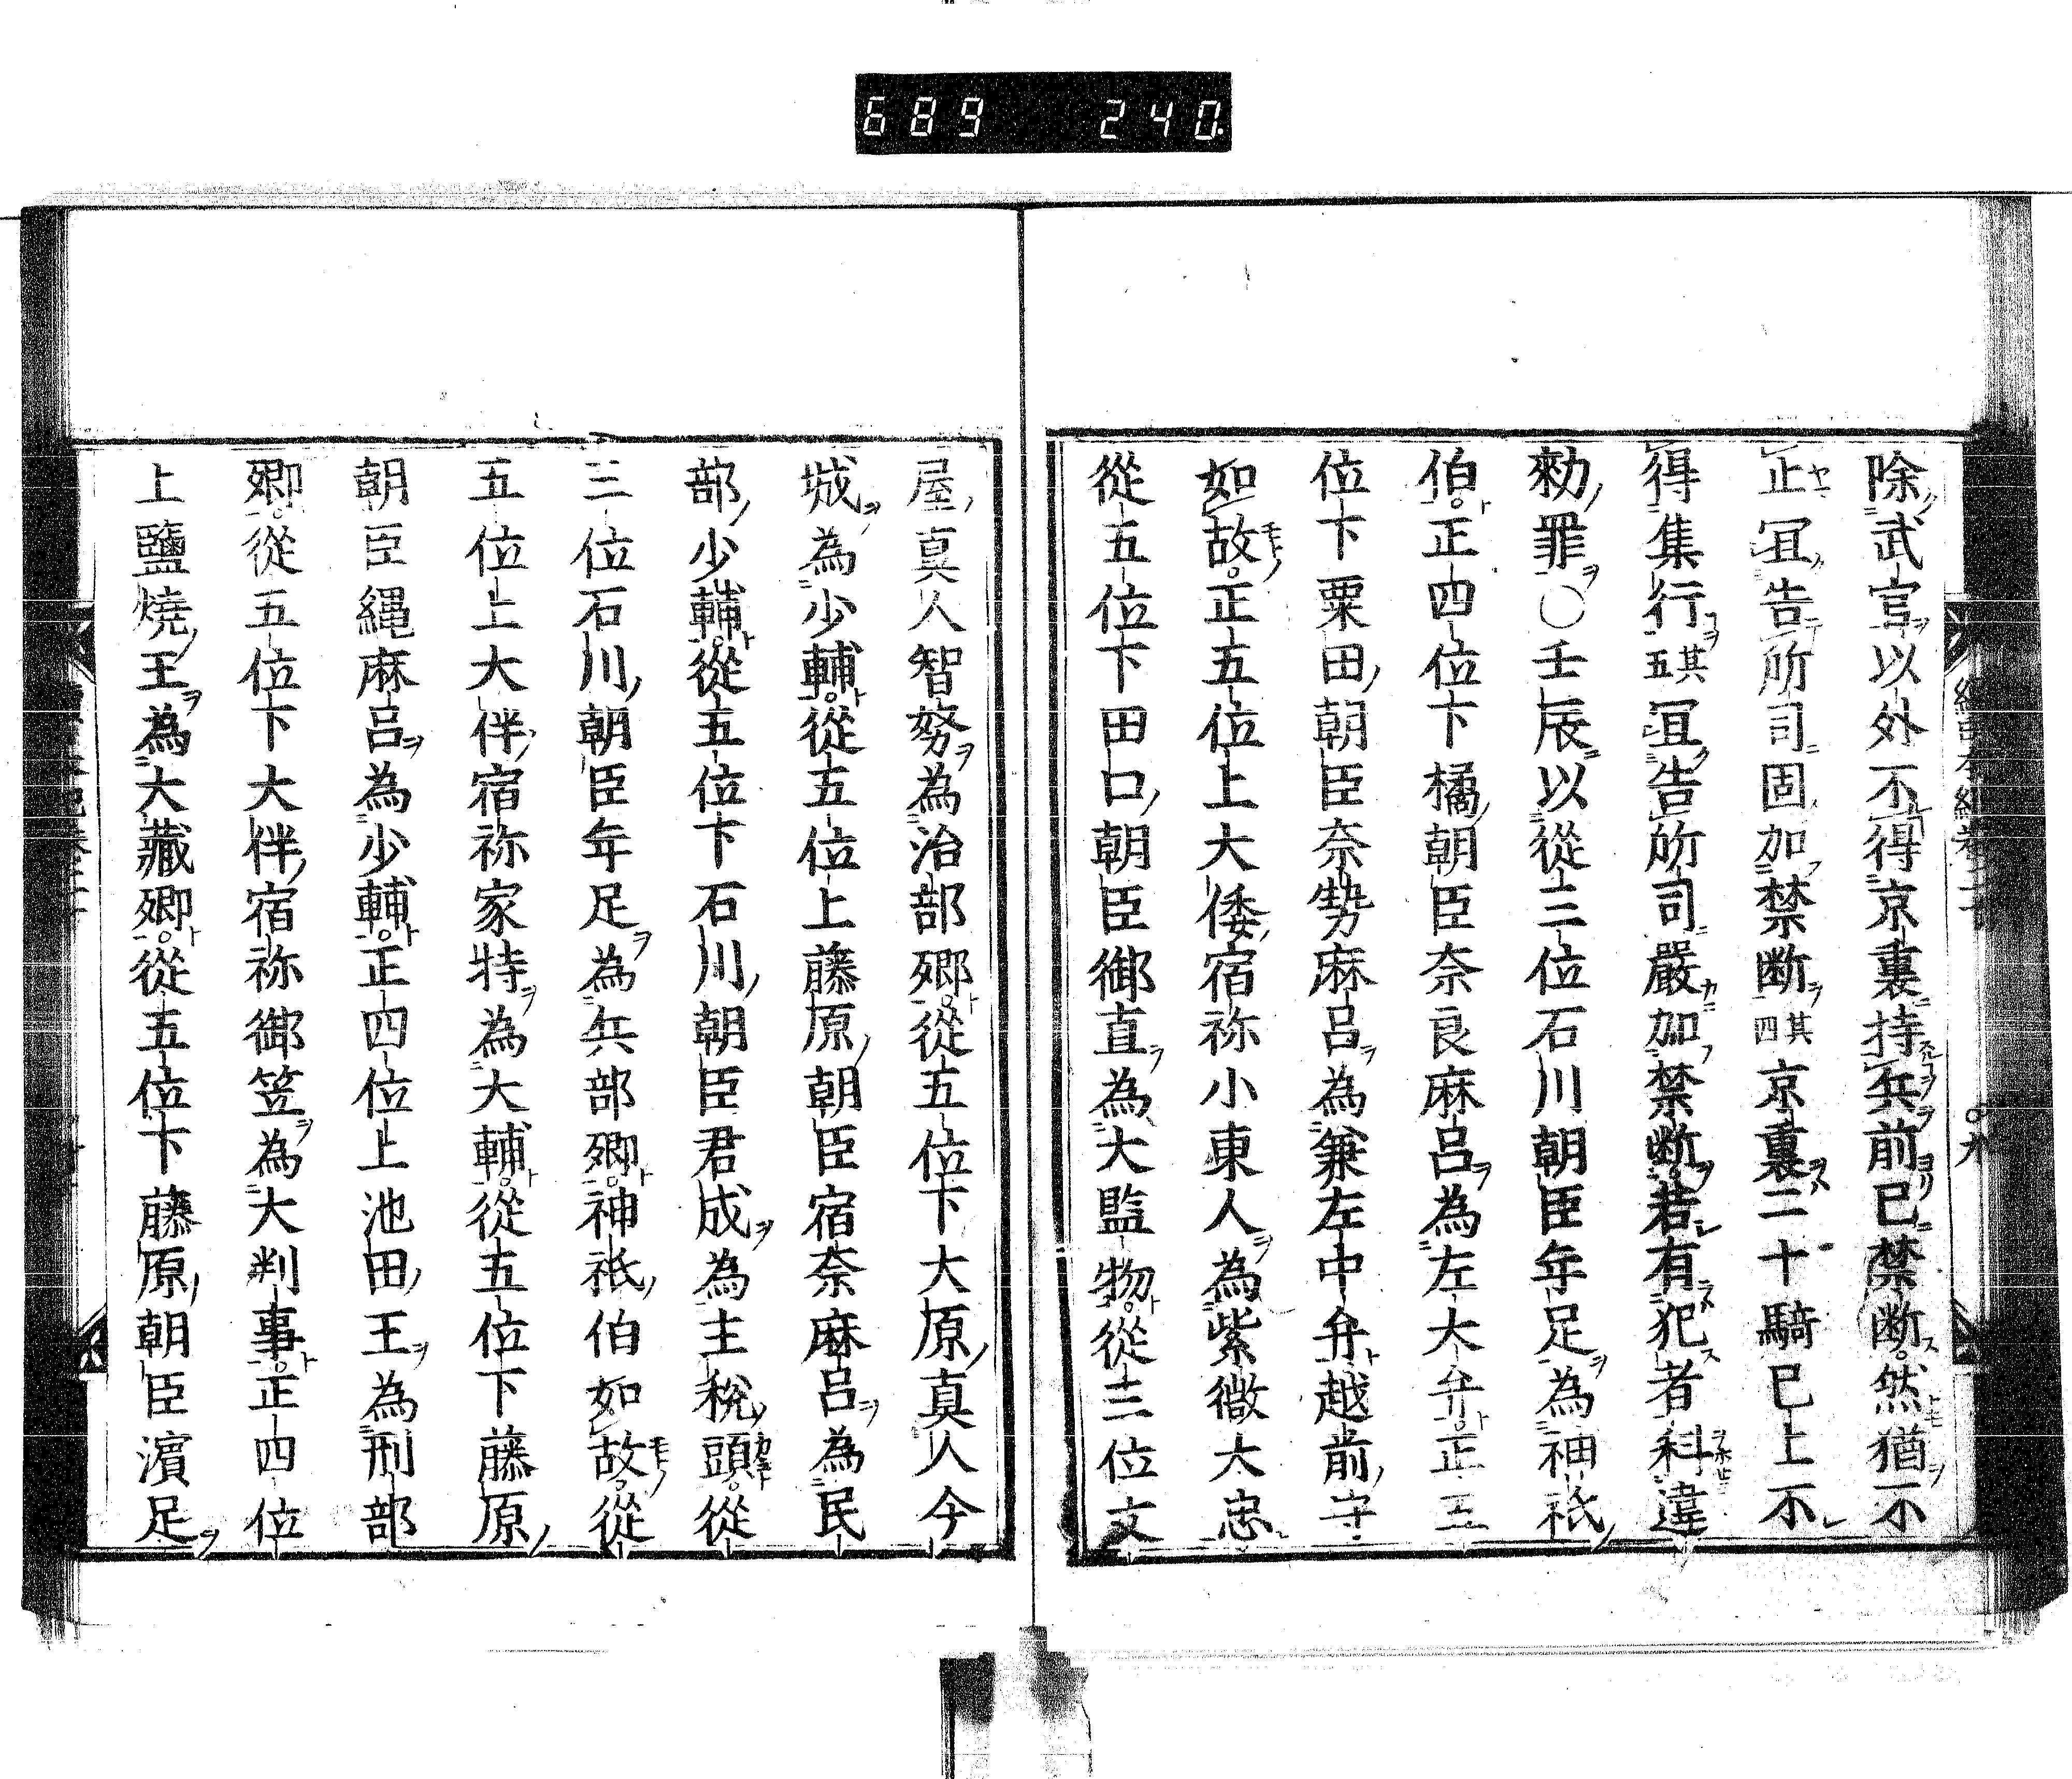 689 240
除武官以外不得京裏持兵前已禁断然猶不
正冝告所司固加禁断其四京裏二十騎已上不
得集行其五冝告所司嚴加禁断若有犯者科違
勑罪〇壬辰以從三位石川朝臣年足為神祇
伯正四位下橘朝臣奈良麻呂為左大弁正五
位下粟田朝臣奈勢麻呂為兼左中弁越前守
如故正五位上大倭宿祢小東人為紫微大忠
從五位下田口朝臣御直為大監物從三位文
屋真人智努為治部卿從五位下大原真人今
城為少輔從五位上藤原朝臣宿奈麻呂為民
部少輔從五位下石川朝臣君成為主稅頭從
三位石川朝臣年足為兵部卿神祇伯如故從
五位上大伴宿祢家持為大輔從五位下藤原
朝臣繩麻呂為少輔正四位上池田王為刑部
卿從五位下大伴宿祢御笠為大判事正四位
上鹽燒王為大藏卿從五位下藤原朝臣濵足